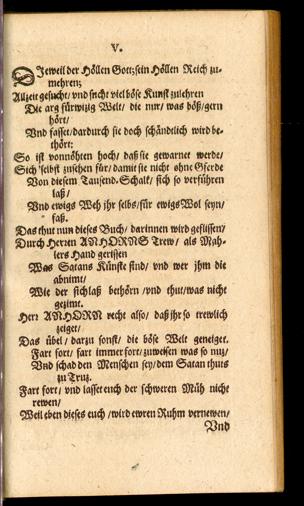 V.
DJeweil der Höllen Gott; sein Höllen Reich zu-
mehren;
Allzeit gesucht/ vnd sucht viel böse Kunst zulehren
Die arg fürwizig Welt/ die nur/ was böß/ gern
hört/
Vnd fasset/ dardurch sie doch schändtlich wird be-
thört:
So ist vonnöhten hoch/ daß sie gewarnet werde/
Sich selbst zusehen für/ damit sie nicht ohne Gferde
Von diesem Tausend-Schalk/ sich so verführen
laß/
Vnd ewigs Weh ihr selbs/ für ewigs Wol seyn/
faß.
Das thut nun dieses Buch/ darinnen wird geflissen/
Durch Herren ANHORNS Trew/ als Mah-
lers Hand gerissen
Was Satans Künste sind/ vnd wer jhm die
abnimt/
Wie der sich laß bethörn/ vnd thut/ was nicht
gezimt.
Herr ANHORN recht also/ daß ihr so trewlich
zeiget/
Das übel/ darzu sonst/ die böse Welt geneiget.
Fart fort/ fart immer fort/ zuweisen was so nuz/
Vnd schad den Menschen sey/ dem Satan thuts
zu Truz.
Fart fort/ vnd lasset euch der schweren Müh nicht
rewen/
Weil eben dieses euch/ wird ewren Ruhm vernewen/
Vnd